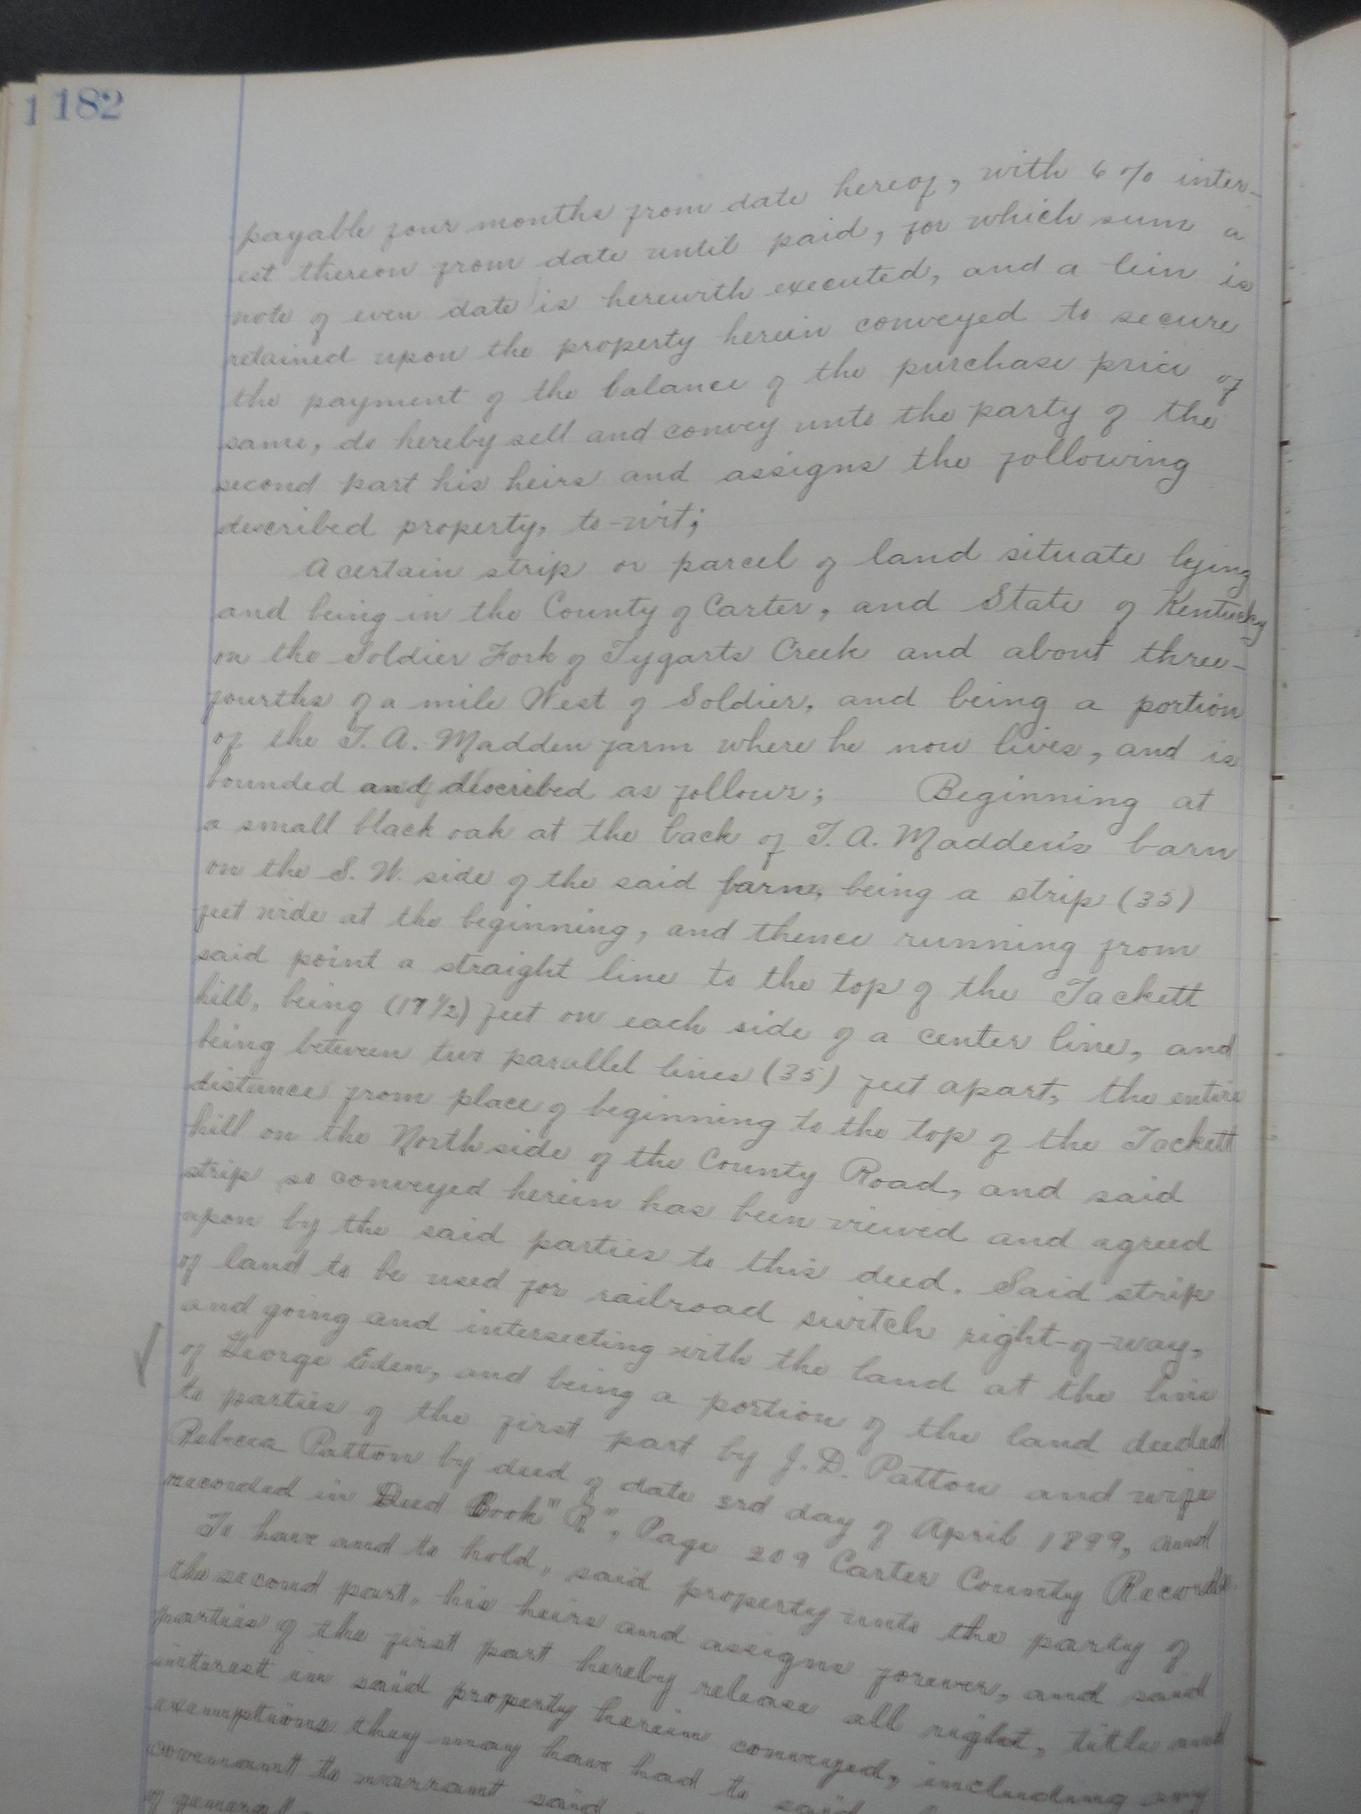 1 182
payable four months from date hereof, with 6% inter-
est thereon from date until paid, for which sum a
note of even date is herewith executed, and a lein is
retained upon the property herein conveyed to secure
the payment of the balance of the purchase price of
same, do hereby sell and convey unto the party of the
second part his heirs and assigns the following
described property, to-wit;
A certain strip or parcel of land situate lying
and being in the County of Carter, and State of Kentucky
on the Soldier Fork of Tygarts Creek and about three-
fourths of a mile West of Soldier, and being a portion
of the T. A. Madden farm where he now lives, and is
bounded and described as follows; Beginning at
a small black oak at the back of T. A. Madden's barn
on the S. W. side of the said barn, being a strip (35)
feet wide at the beginning, and thence running from
said point a straight line to the top of the Tackett
hill, being (17 1/2) feet on each side of a center line, and
being between two parallel lines (35) feet apart, the entire
distance from place of beginning to the top of the Tackett
hill on the North side of the County Road, and said
strip so conveyed herein has been viewed and agreed
upon by the said parties to this deed. Said strip
of land to be used for railroad switch right-of-way,
and going and intersecting with the land at the line
of George Eden, and being a portion of the land deeded
to parties of the first part by J. D. Patton and wife
Rebecca Patton by deed of date 3rd day of April 1899, and
recorded in Deed Book "R", Page 209 Carter County Records.
To have and to hold, said property unto the party of
the second part, his heirs and assigns forever, and said
parties of the first part hereby release all right, title and
interest in said property herein conveyed, including any
exemptions they may have had to said
covenant to warrant said
of general